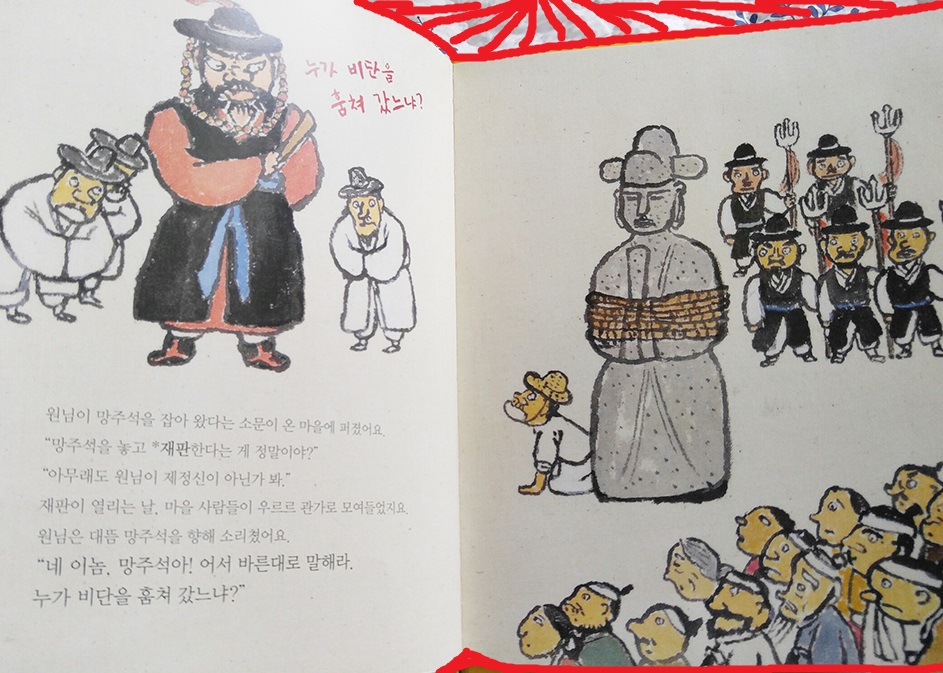 누가 비단을
훔쳐 갔느냐?
원님이 망주석을 잡아 왔다는 소문이 온 마을에 퍼졌어요.
“망주석을 놓고 *재판한다는 게 정말이야?”
“아무래도 원님이 제정신이 아닌가 봐.”
재판이 열리는 날, 마을 사람들이 우르르 관가로 모여들었지요.
원님은 대뜸 망주석을 향해 소리쳤어요.
“네 이놈, 망주석아! 어서 바른대로 말해라.
누가 비단을 훔쳐 갔느냐?”